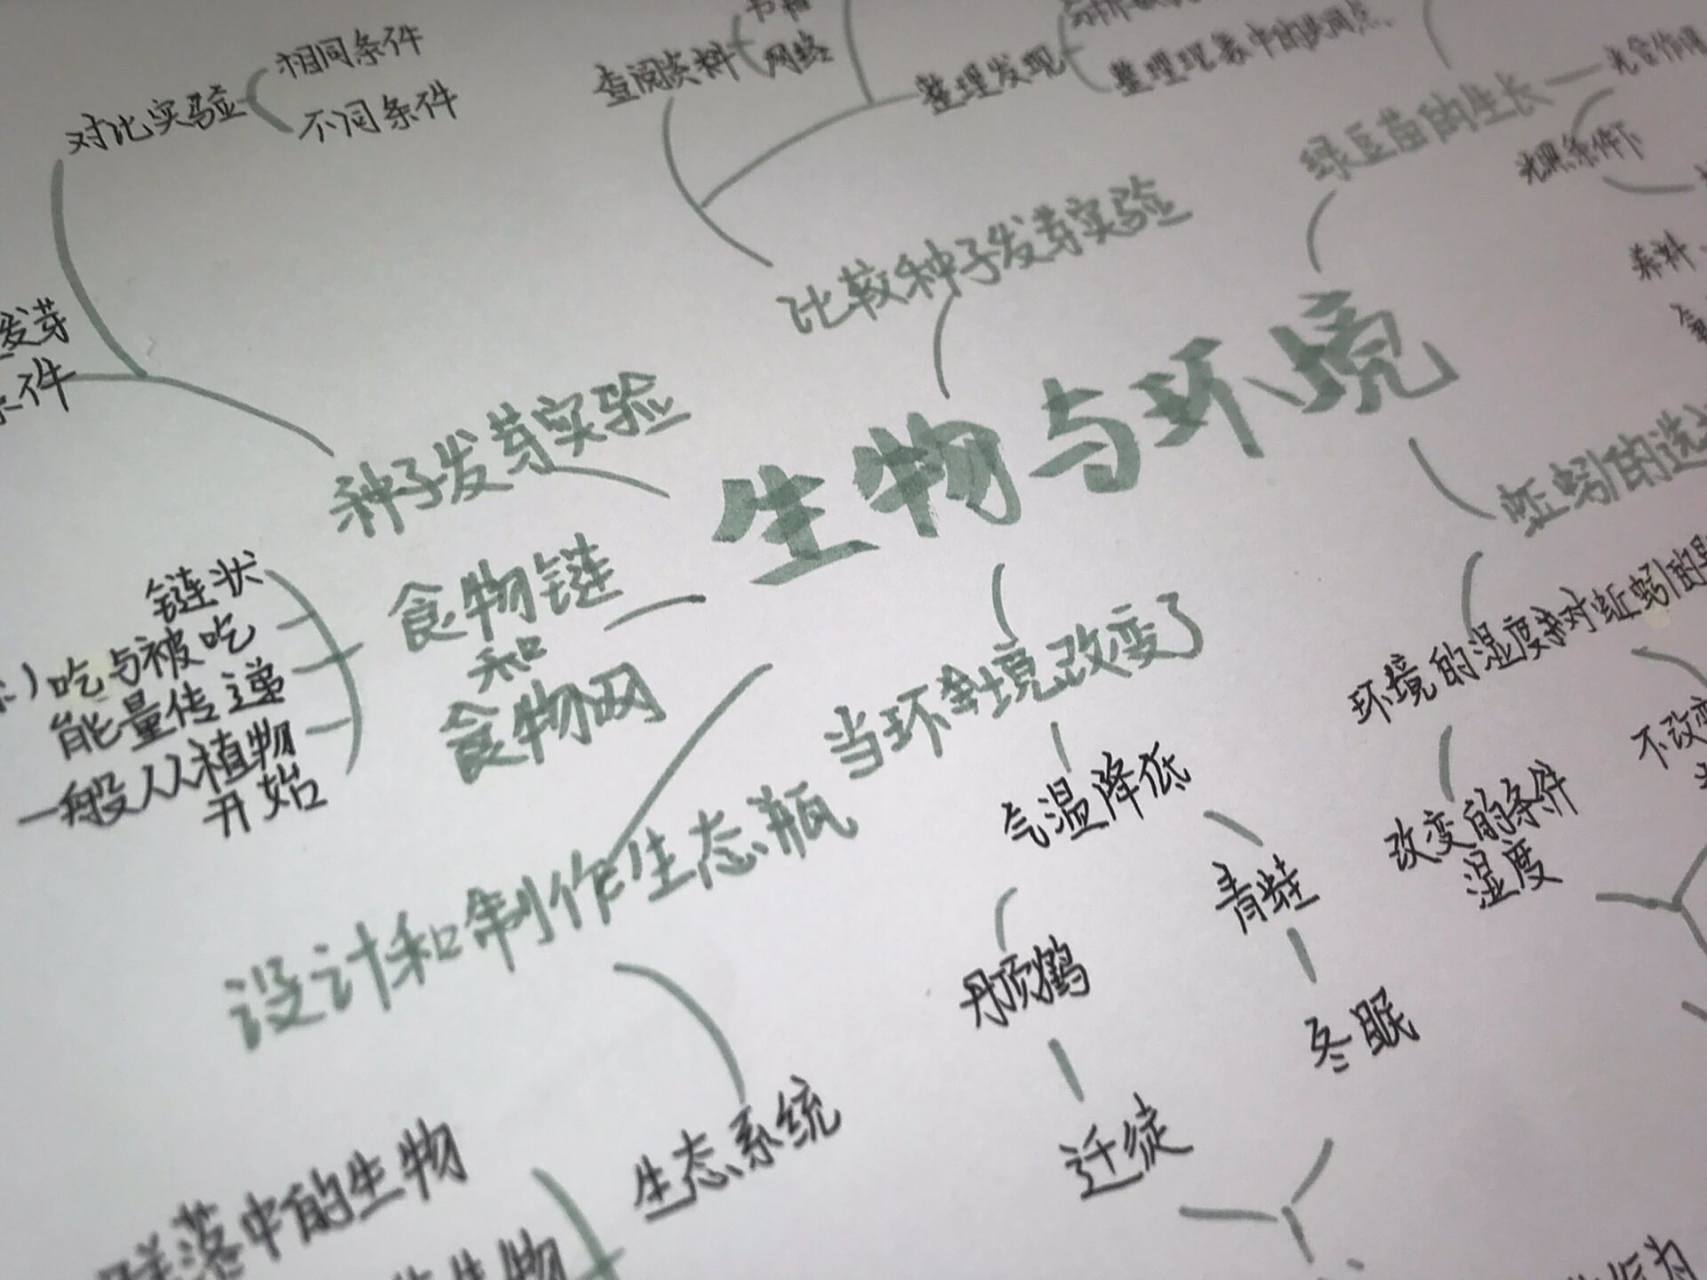 相同条件
对比实验
不同条件
网络
查阅资料
整理发现
整理现象中的共同点
绿豆苗的生长
光照条件下
养料
比较种子发芽实验
发芽
条件
种子发芽实验
生物与环境
链状
吃与被吃
能量传递
一般从植物
开始
食物链
和
食物网
当环境改变了
蚯蚓的选
环境的湿度对蚯蚓的
不改变
改变的条件
湿度
气温降低
青蛙
冬眠
丹顶鹤
迁徙
设计和制作生态瓶
生态系统
落中的生物
生物